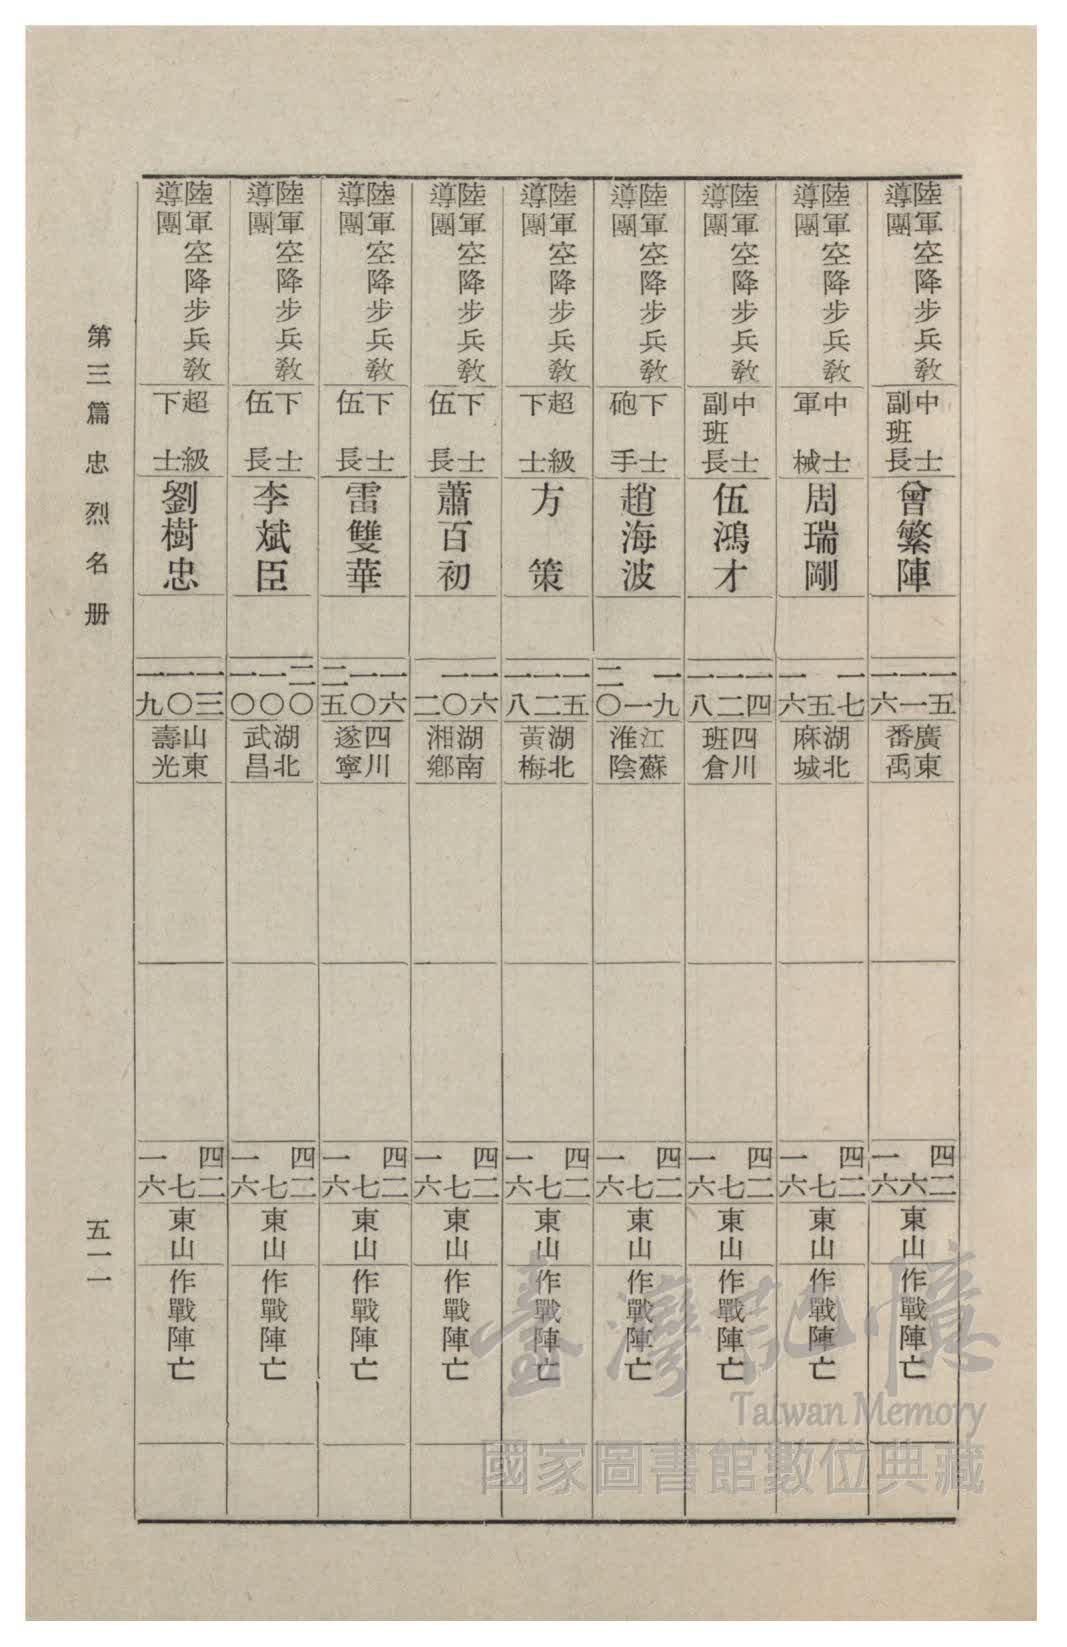 陸軍空降步兵教導團 中士副班長 曾繁陣 一五 一一 一六 廣東番禹 四二 六 一六 東山 作戰陣亡
陸軍空降步兵教導團 中士軍械 周瑞剛 一七 五 一六 湖北麻城 四二 七 一六 東山 作戰陣亡
陸軍空降步兵教導團 中士副班長 伍鴻才 一四 一二 一八 四川班倉 四二 七 一六 東山 作戰陣亡
陸軍空降步兵教導團 下士砲手 趙海波 一九 一 二〇 江蘇淮陰 四二 七 一六 東山 作戰陣亡
陸軍空降步兵教導團 超級下士 方策 一五 一二 一八 湖北黃梅 四二 七 一六 東山 作戰陣亡
陸軍空降步兵教導團 下士伍長 蕭百初 一六 一〇 二 湖南湘鄉 四二 七 一六 東山 作戰陣亡
陸軍空降步兵教導團 下士伍長 雷雙華 一六 一〇 二五 四川遂寧 四二 七 一六 東山 作戰陣亡
陸軍空降步兵教導團 下士伍長 李斌臣 二〇 一〇 一〇 湖北武昌 四二 七 一六 東山 作戰陣亡
陸軍空降步兵教導團 超級下士 劉樹忠 一三 一〇 一九 山東壽光 四二 七 一六 東山 作戰陣亡
第三篇 忠烈名册
五一一
臺灣記憶
Taiwan Memory
國家圖書館數位典藏